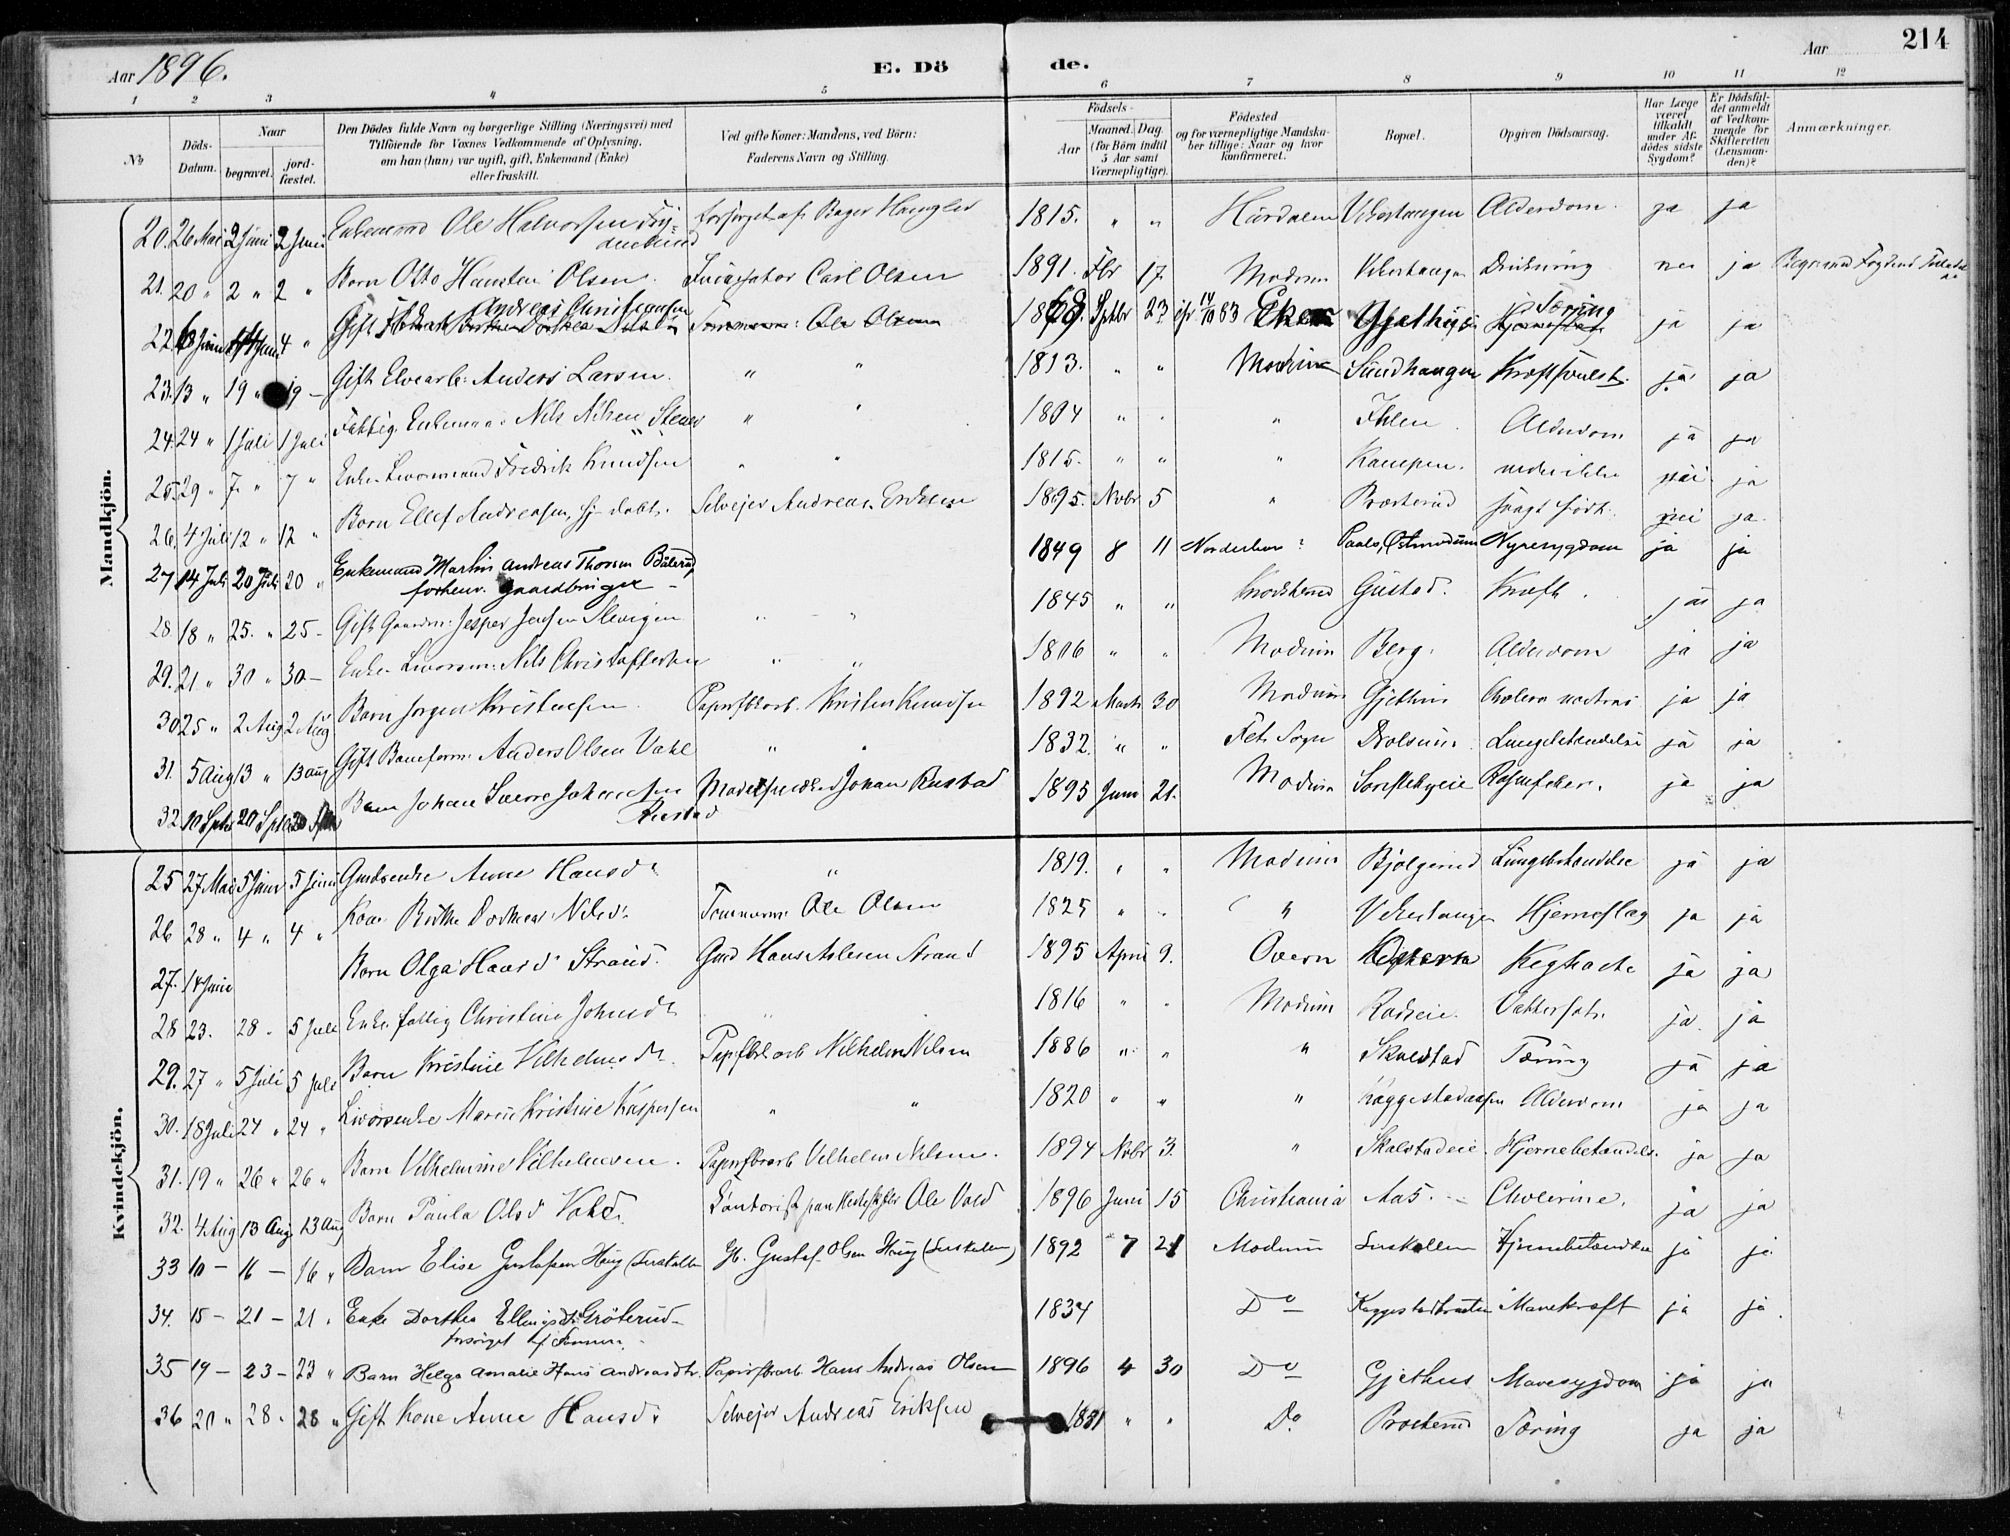 Aar 1896.
E. Dö
de.
Aar
214
1 2 3 4 5 6 7 8 9 10 11 12
No
Döds-Datum.
Naar
begravet.
jord-fæstet.
Den Dödes fulde Navn og borgerlige Stilling (Næringsvei) med
Tilföiende for Voxnes Vedkommende af Oplysning,
om han (hun) var ugift, gift, Enkemand (Enke)
eller fraskilt.
Ved gifte Koner: Mandens, ved Börn:
Faderens Navn og Stilling.
Födsels-
Aar
Maaned. Dag.
(for Börn indtil
5 Aar samt
Værnepligtige).
Födested
og for værnepligtige Mandska-
ber tillige: Naar og hvor
konfirmeret.
Bopæl.
Opgiven Dödsaarsag.
Har Læge
været
tilkaldt
under Af-
dödes sidste
Sygdom?
Er Dödsfal-
det anmeldt
af Vedkom-
mende for
Skifteretten
(Lensman-
den)?
Anmærkninger.
Mandkjön.
20. 26 Mai 2 Juni 2 Juni Enkemand Ole Halvorsen forsörget af Bager 1815. " " Vikersund Alderdom. ja ja
21. 20 " 2 " 2 " Barn Otto Olsen. Carl Olsen 1891. Fbr 17. Modum Drukning nei ja
22. Juni 4 " Gift Andreas Christiansen Ole Olsen Sptbr 23 Eker Gjethus Tæring ja ja
23. 13 " 19 " 19 – Gift Elvearb: Anders Larsen. " " 1813. " " Modum Kræftsvulst. ja ja
24. 24 " 1 Juli 1 Juli Fattig. Enkemand Nils Nilsen " " 1804 " " " Ihlen Alderdom ja ja
25. 29 " 7 " 7 " Enke. Livörsmand Fredrik Knudsen " " 1815. " " " Kampen. nei ja
26. 4 Juli 12 " 12 " Barn Ellef Andreasen, hj. döbt. Selvejer Andreas Eriksen 1895. Nvbr 5 " Præsterud svagt født. nei ja
27 14 Juli 20 Juli 20 " Enkemand Martin Andreas Thorsen
forhenv. Gaardbruger – 1849 8 11 Norderhov? Paals, Østmodum Nyresygdom ja ja
28. 18 " 25. " 25 – Gift Gaardm: Jesper Jensen " " 1845 " " Gustad. Kræft. ja ja
29. 21 " 30 " 30 – Enke. Livörsm: Nils Christoffersen " " 1806 " " Modum Berg. Alderdom ja ja
30 25 " 2 Aug 2 Aug Barn Jørgen Kristensen Papirfbkarb. Kristen Knudsen 1892 Marts 30 Modum Gjethus Cholera nostras ja ja
31. 5 Aug 13 " 13 Aug Gift Baneform: Anders Olsen " " 1832. " " Fet Sogn Drolsum. Lungebetændelse ja ja
32 10 Sptb 20 Sptb Barn Johan Sverre Johansen
Rustad Johan Rustad 1895 Juni 21. Modum ja ja
Kvindekjön.
25 27 Mai 5 Juni 5 Juni Gmdsenke Anne Hansdr " 1819. " " Modum Bjölgerud Lungebetændelse ja ja
26 28 " 4 " 4 " Kone Birthe Dorthea Nilsdr Tömmerm: Ole Olsen 1825 " " " Hjerneslag ja ja
27. 14 Juni Barn Olga Hansdr Strand. Gmd Hans Strand 1895 April 9. Overn Kighoste ja ja
28 23. 28 " 5 Juli Enke. fattig Christine Johnsdr 1816 " " Modum Vattersot. ja ja
29. 27 " 5 Juli 5 Juli Barn Kristine Vilhelmsdr Papfbkarb Vilhelm Nilsen 1886 " " " Skalstad Tæring ja ja
30. 18 Juli 24 " 24 " Livörsenke Maren Kristine Kaspersen " " 1820 " " " Kaggestadaasen Alderdom ja ja
31. 19 " 26 " 26 " Barn Vilhelmine Vilhelmsen. Papirfbrarb Vilhelm Nilsen. 1894 Nvbr 3. " Skalstadeie Hjernebetændelse. ja ja
32. 4 Aug 13 Aug 13 Aug Barn Paula Olsd Vold. Kontorist Ole Vold 1896 Juni 15 Christiania Aas. Cholerine. ja ja
33 10 – 16 – 16 " Barn Elise Gustafsen Haug Gb. Gustaf Olsen Haug 1892 7 21 Modum Hjernebetændelse ja ja
34. 15 – 21 – 21 " Enke Dorthea Ellingsdr Gröterud –
forsörget af Sönnen. 1834 Do Mavekræft ja ja.
35 19 – 23 – 23 " Barn Helga Amalie Hans Andreasdtr. Papirfbrarb. Hans Andreas Olsen 1896 4 30 Do Gjethus Mavesygdom ja ja
36 20 " 28 " 28 " Gift Kone Anne Hansdr Selvejer Andreas Eriksen 1831 " " Do. Præsterud Tæring ja ja